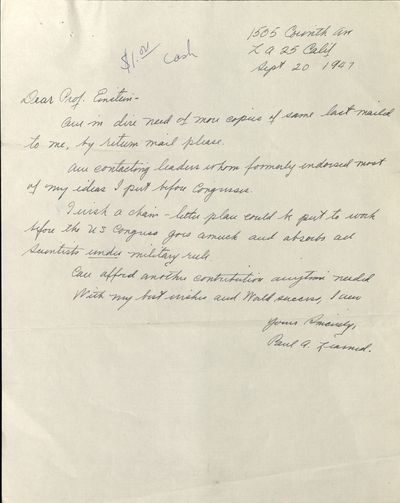 1505 Corinth Av
L A 25 Calif
Sept 20 1947
$1.00 cash
Dear Prof. Einstein-
Am in dire need of more copies of same last mailed
to me, by return mail please.
Am contacting leaders whom formerly endorsed most
of my ideas I put before Congresses.
I wish a chain-letter plan could be put to work
before the US Congress goes amuck and absorbs all
Scientists under military rule.
Can afford another contribution anytime needed
With my best wishes and World success, I am
Yours Sincerely,
Paul A. Learned.